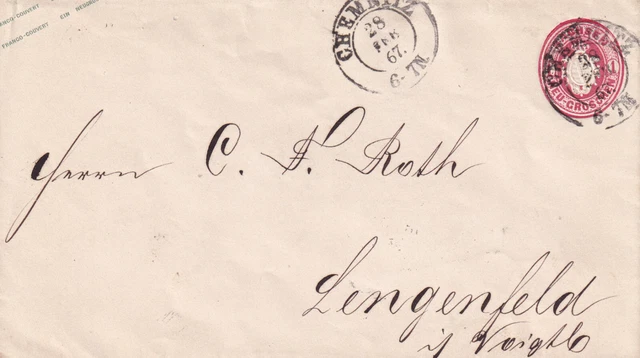 FRANCO-COUVERT EIN NEUGR
FRANCO-COUVERT
CHEMNITZ
28
FEB
67.
6-7N.
NEU-GROSCHEN
6-7N
Herrn C. F. Roth
Lengenfeld
i/ Voigtl